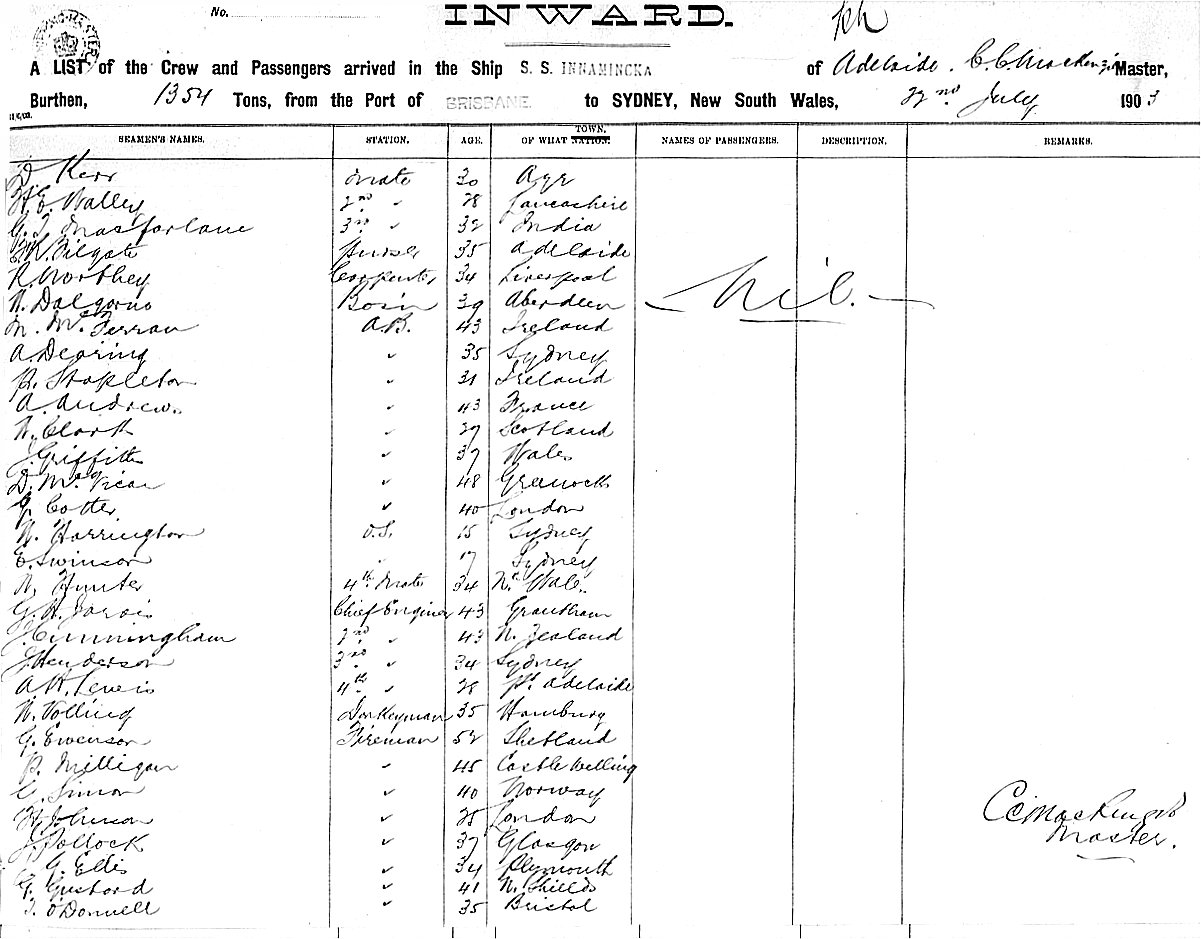 No.
INWARD.
A LIST of the Crew and Passengers arrived in the Ship S. S. INNAMINCKA of Adelaide. C.C. Mackenzie Master,
Burthen, 1354 Tons, from the Port of BRISBANE. to SYDNEY, New South Wales, 22nd July 1903
SEAMEN'S NAMES. STATION. AGE. OF WHAT NATION. TOWN. NAMES OF PASSENGERS. DESCRIPTION. REMARKS.
D Kerr Mate 30 Ayr
H.E. Walley 2nd " 28 Lancashire
G. T. Macfarlane 3rd " 32 India
Pilgate Purser 35 Adelaide
R. Northey Carpenter 34 Liverpool
W. Dalgarno Bosin 39 Aberdeen
Nil.
M. McFerran A.B. 43 Ireland
A. Dearing " 35 Sydney
R. Stapleton " 31 Ireland
A. Andrew. " 43 France
W. Clark " 29 Scotland
J. Griffith " 37 Wales
D. McVicar " 48 Greenock
J. Cotter " 40 London
W. Harrington O.S. 15 Sydney
E. Swinson " 17 Sydney
W. Hunter 4th Mate 34 N. Wale.
G. H. Jarvis Chief Enginer 43 Grantham
J. Cunningham 2nd " 43 N. Zealand
J. Henderson 3rd " 34 Sydney
A. H. Lewis 4th " 28 Pt. Adelaide
W. Volling Donkeyman 35 Hamburg
G. Ewenson Fireman 52 Shetland
P. Milligan " 45 Castle Welling
C. Simon " 40 Norway
H. Johnson " 25 London
CC Mackenzie
J. Pollock " 37 Glasgow
Master.
G. Ellis " 34 Plymouth
G. Gustard " 41 N. Shields
T. O'Donnell " 35 Bristol